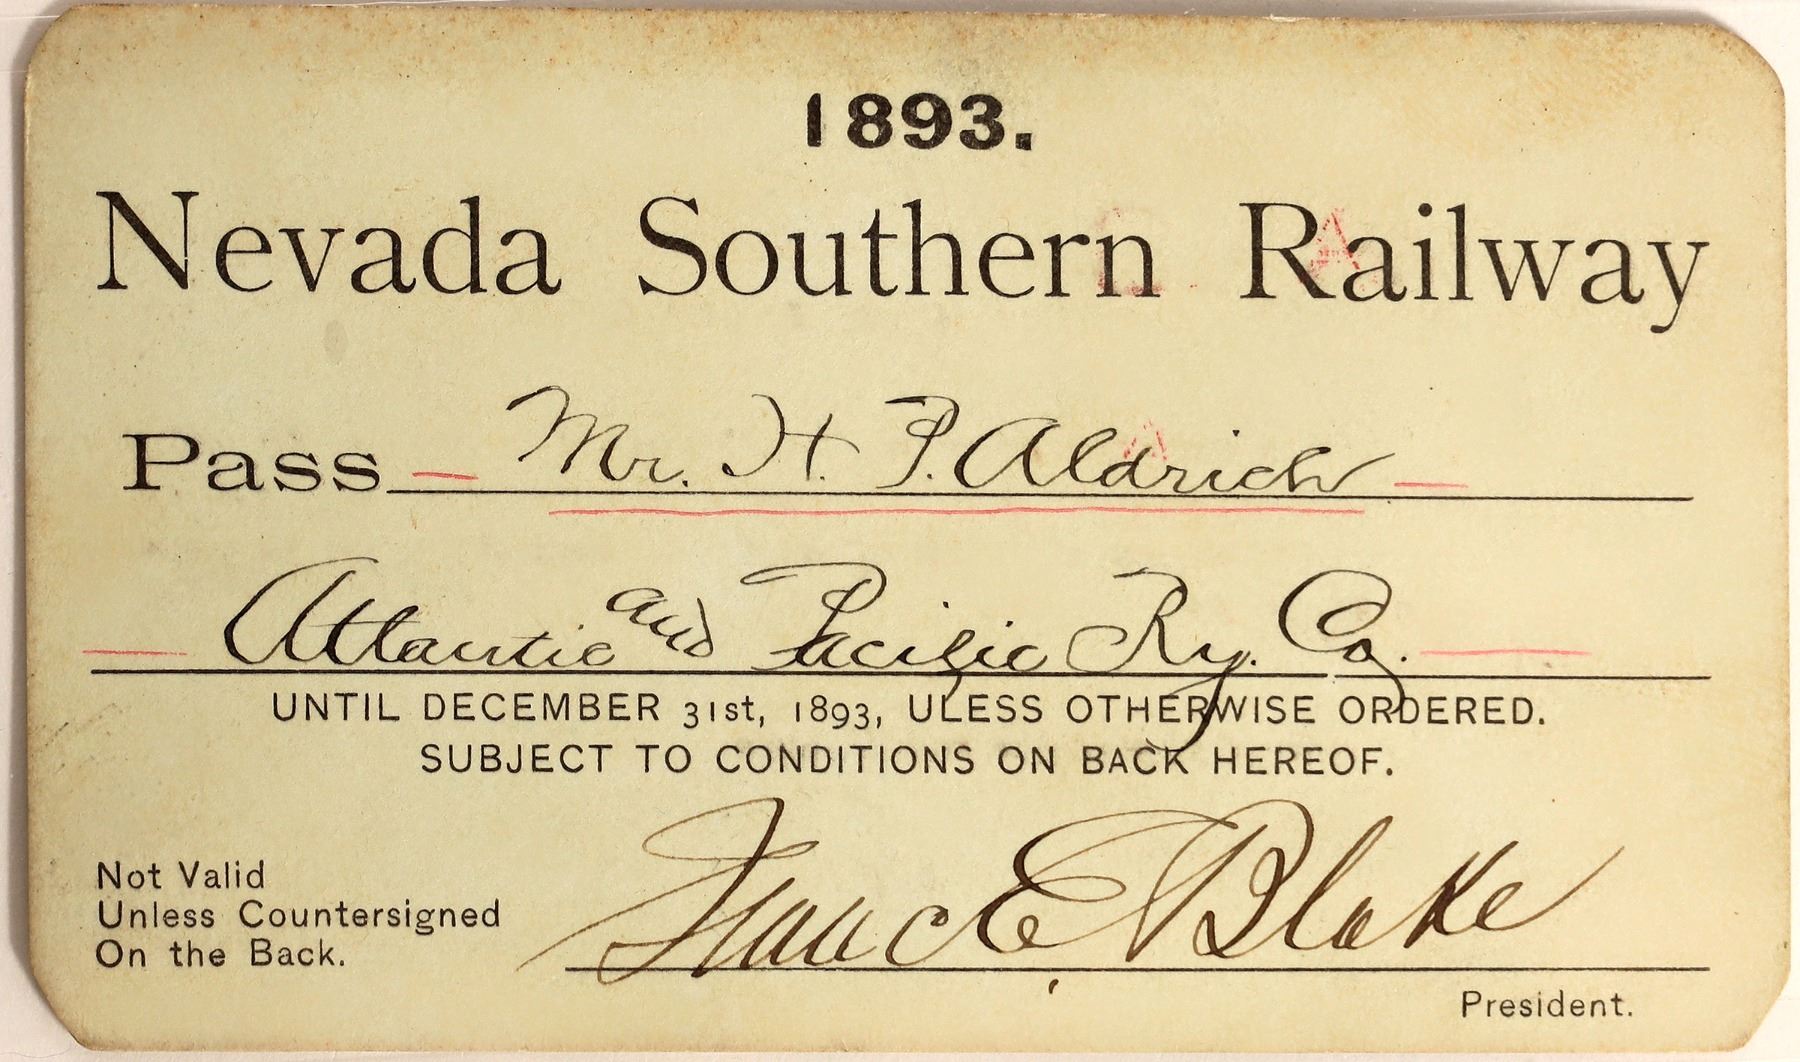 1893.
Nevada Southern Railway
Pass Mr. H. P. Aldrich
Atlantic and Pacific Ry. Co.
UNTIL DECEMBER 31st, 1893, ULESS OTHERWISE ORDERED.
SUBJECT TO CONDITIONS ON BACK HEREOF.
Not Valid
Unless Countersigned
On the Back.
Isaac E Blake
President.